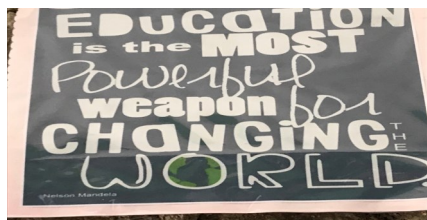 EDUCATION
is the MOST
Powerful
weapon for
CHANGING THE
WORLD
@Nelson Mandela